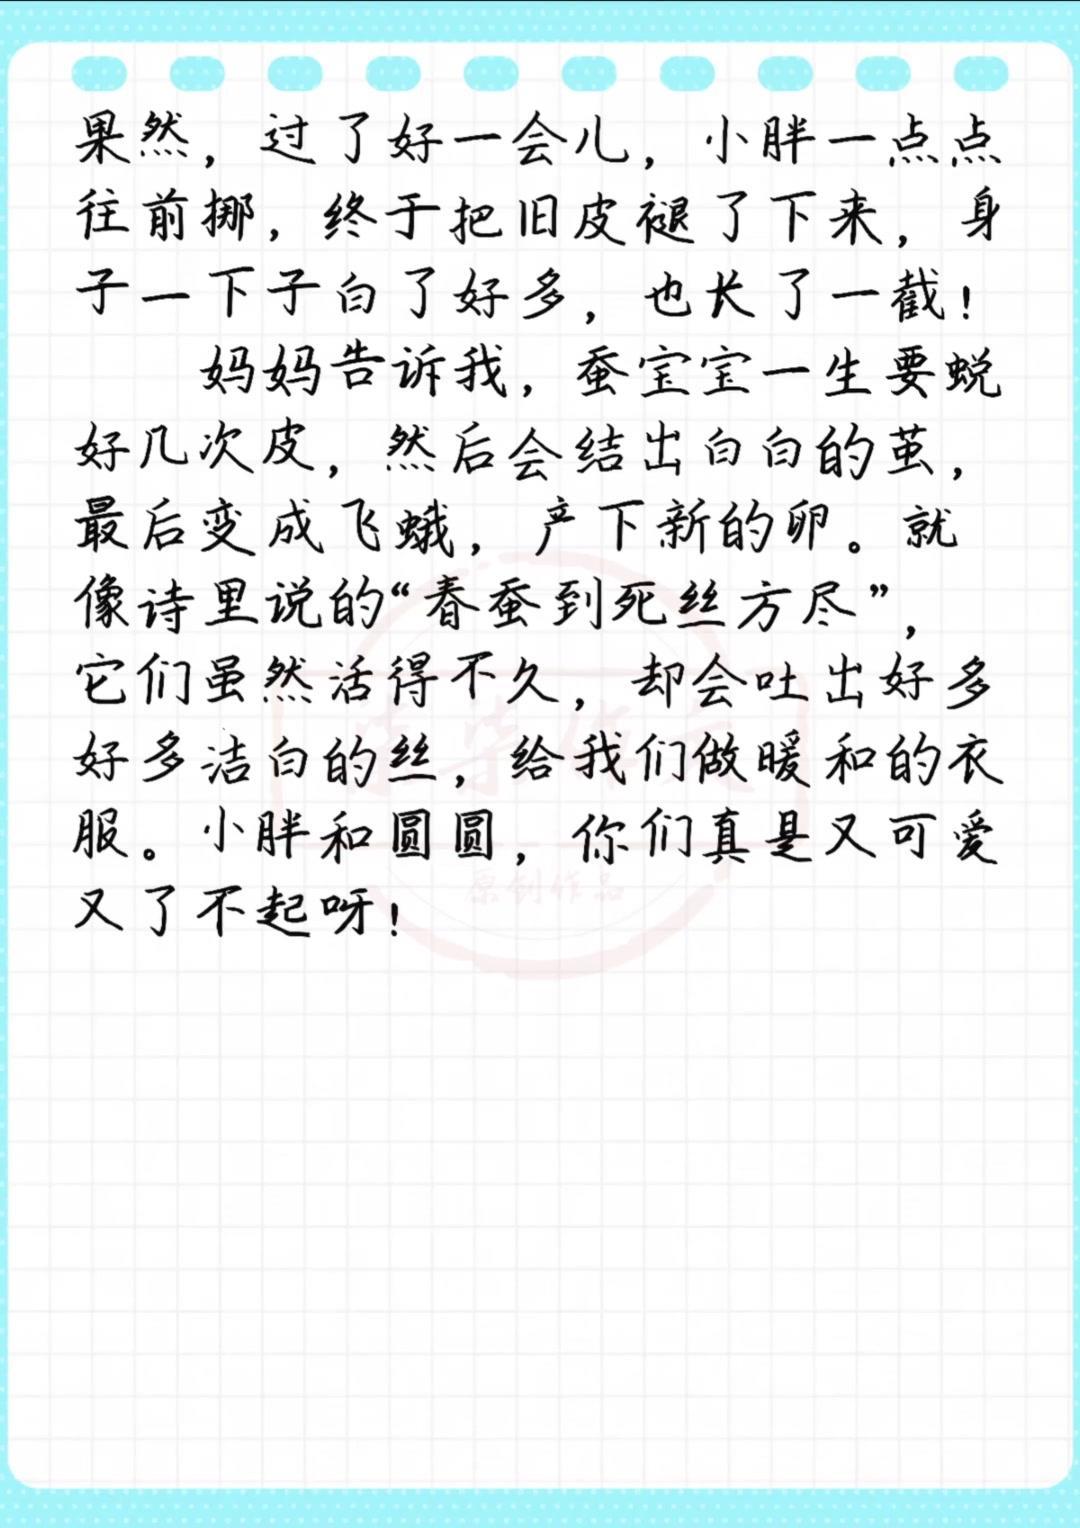 果然，过了好一会儿，小胖一点点
往前挪，终于把旧皮褪了下来，身
子一下子白了好多，也长了一截！
妈妈告诉我，蚕宝宝一生要蜕
好几次皮，然后会结出白白的茧，
最后变成飞蛾，产下新的卵。就
像诗里说的“春蚕到死丝方尽”，
它们虽然活得不久，却会吐出好多
好多洁白的丝，给我们做暖和的衣
服。小胖和圆圆，你们真是又可爱
又了不起呀！
原创作品